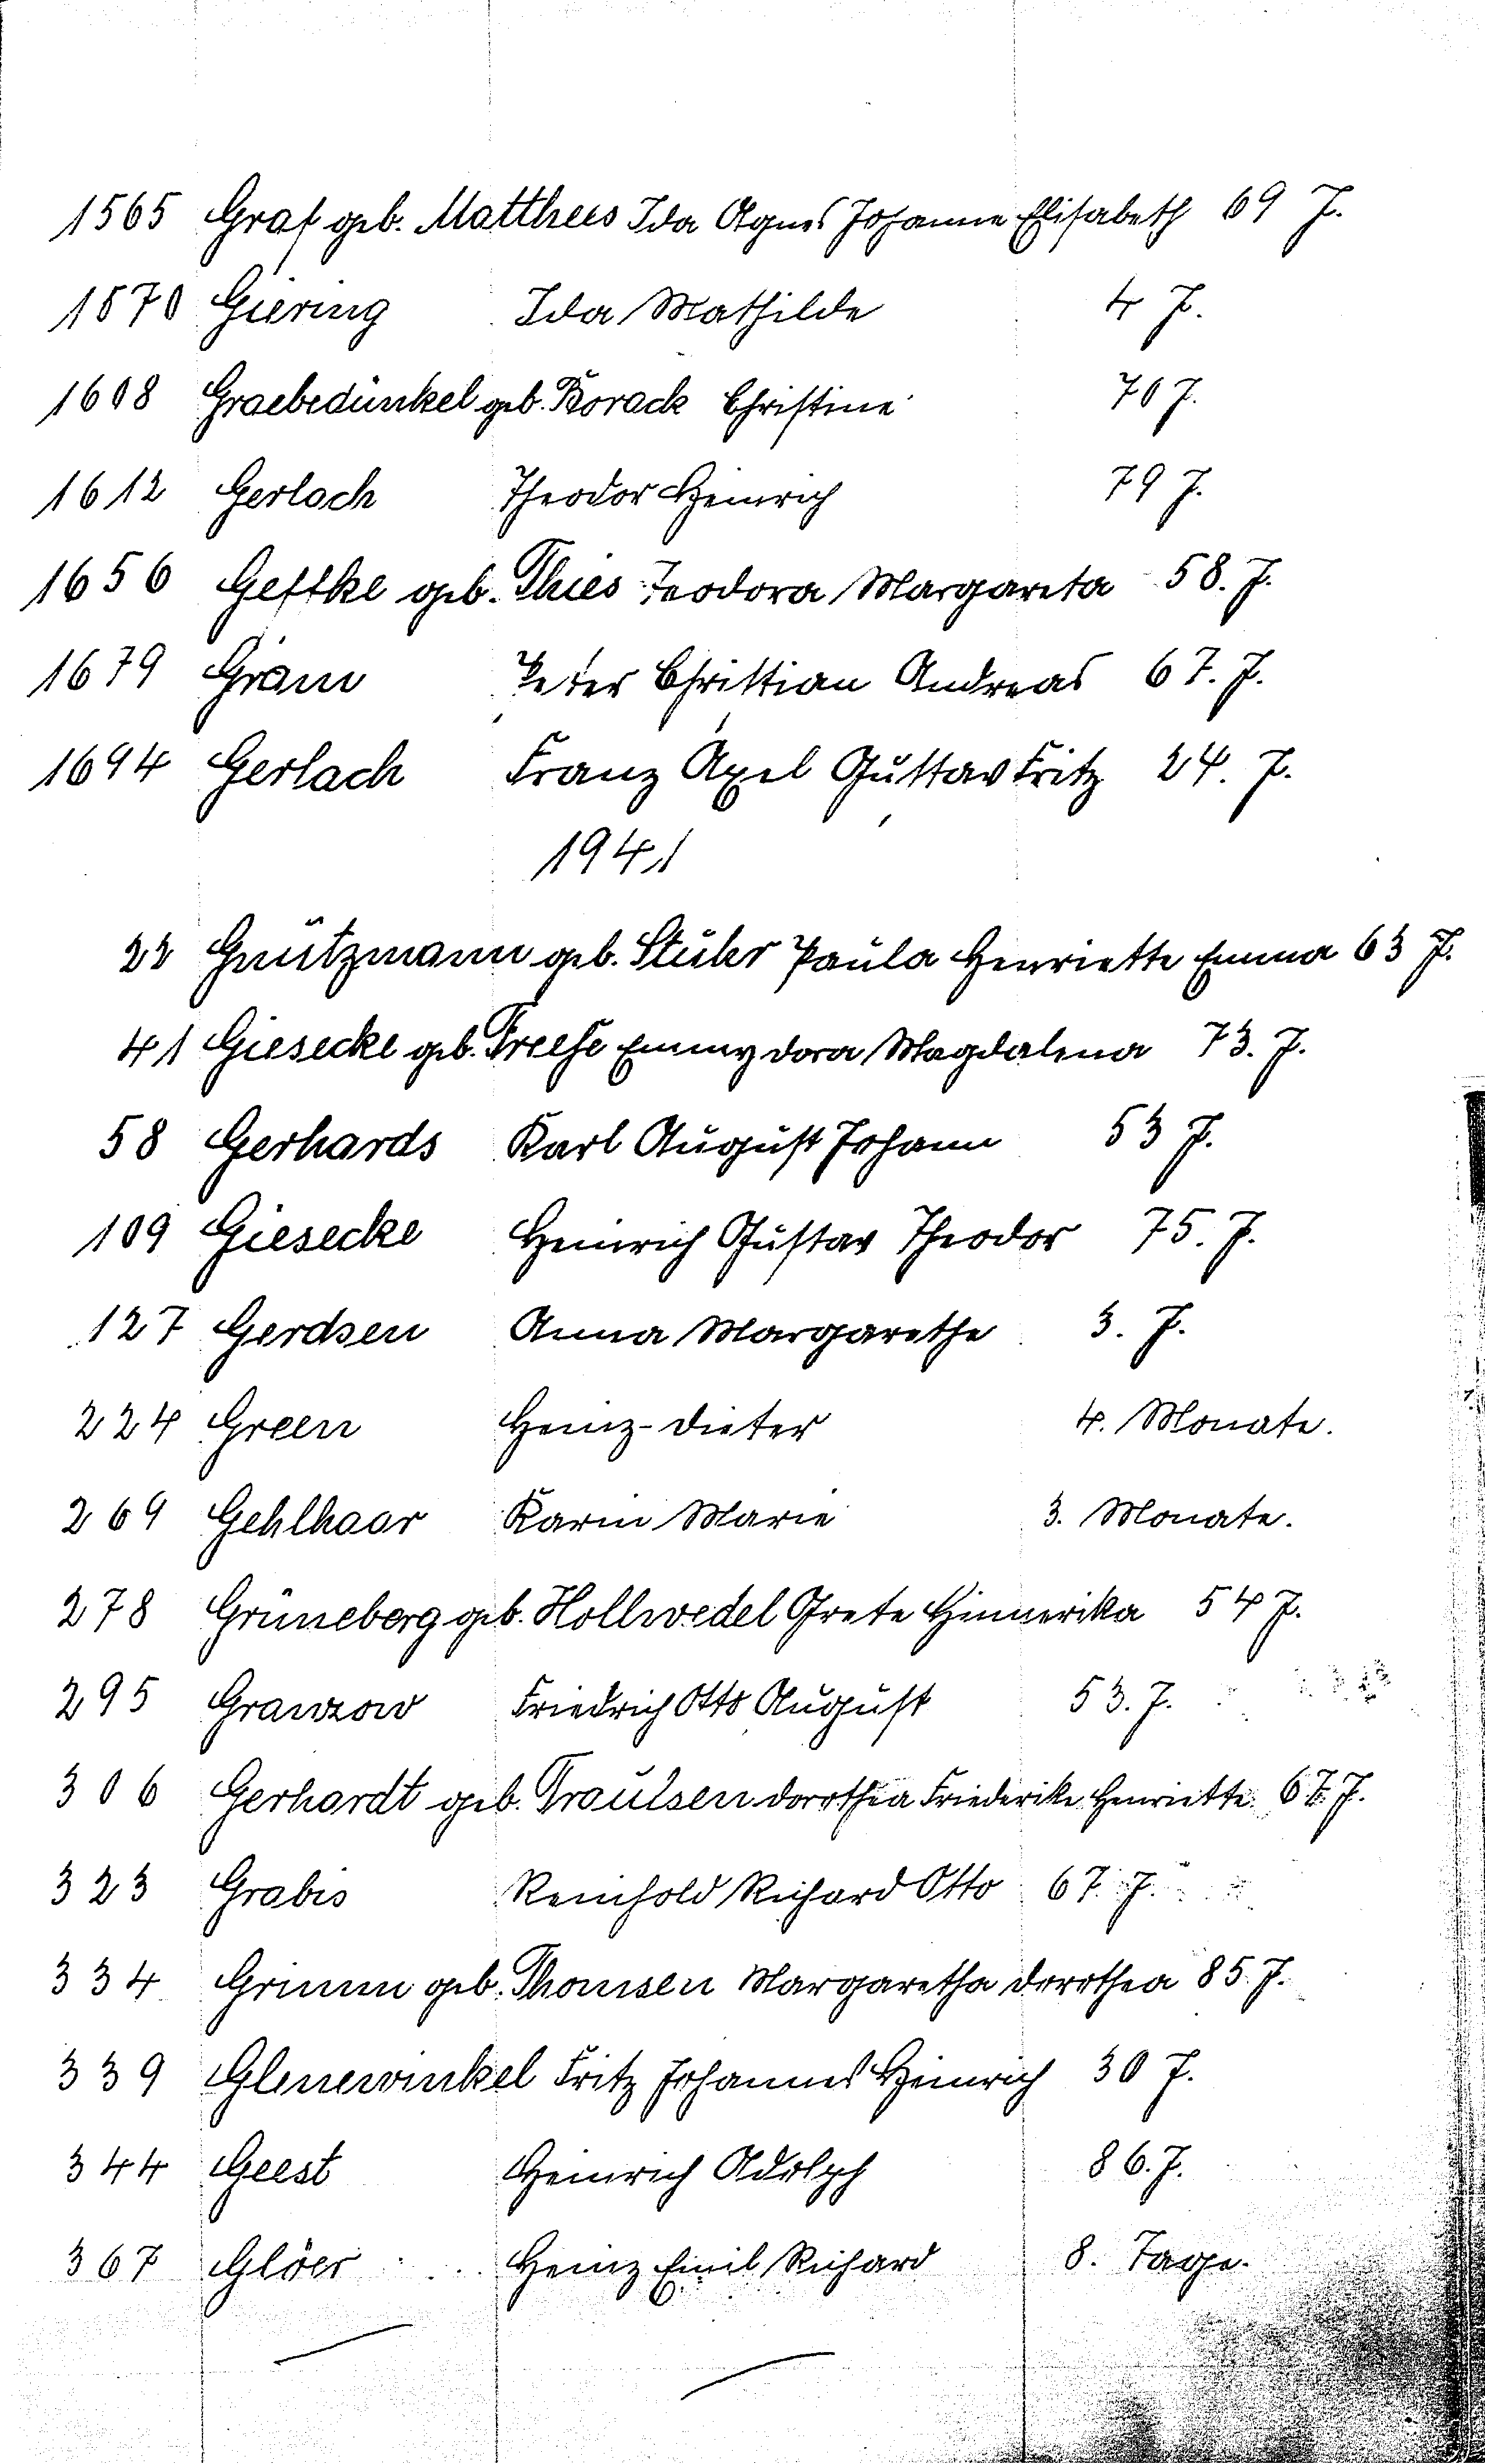 1565 Graf geb. Matthees Ida Agnes Johanne Elisabeth 69 J.
1570 Giering Ida Mathilde 4 J.
1608 Graebedünkel geb. Borack Christine 70 J.
1612 Gerlach Theodor Heinrich 79 J.
1656 Geffke geb. Thies Teodora Margareta 58. J.
1679 Gram Peter Christian Andreas 67. J.
1694 Gerlach Franz Axel Gustav Fritz 24. J.
1941
22 Gnützmann geb. Stühr Paula Henriette Emma 63 J.
41 Giesecke geb. Freese Emmy Dora Magdalena 73. J.
58 Gerhards Karl August Johann 53 J.
109 Giesecke Heinrich Gustav Theodor 75. J.
127 Gerdsen Anna Margarethe 3. J.
224 Green Heinz-Dieter 4. Monate.
269 Gehlhaar Karin Marie 3. Monate.
278 Grüneberg geb. Hollwedel Grete Hinnerika 54 J.
295 Granzow Friedrich Otto August 53. J.
306 Gerhardt geb. Traulsen Dorothea Friederike Henriette 67. J.
323 Grabis Reinhold Richard Otto 67. J.
334 Grimm geb. Thomsen Margaretha Dorothea 85. J.
339 Glenewinkel Fritz Johannes Heinrich 30 J.
344 Geest Heinrich Adolph 86. J.
367 Glöer Heinz Emil Richard 8. Tage.